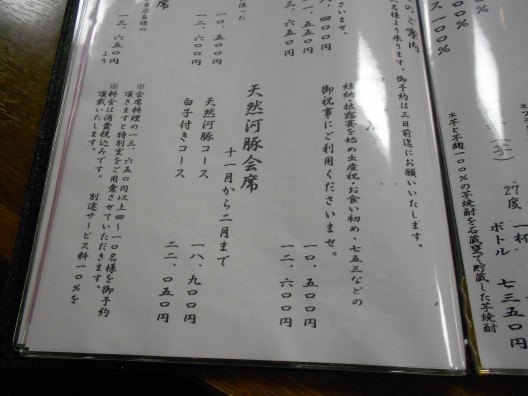 ス一〇〇%
27度 一杯
ボトル 七三五〇円
*芋と芋麹一〇〇%の芋焼酎を石蔵甕で貯蔵した芋焼酎
のご案内
名様より承ります。御予約は三日前迄にお願いいたします。
さいませ。
八、四〇〇円
一二、六〇〇円
結納・披露宴を始め出産祝・お食い初め・七五三などの
御祝事にご利用くださいませ。
一〇、五〇〇円
一二、六〇〇円
使った
一〇、五〇〇円
一三、六五〇円
天然河豚会席
十一月から二月まで
天然河豚コース
一八、九〇〇円
白子付きコース
二二、〇五〇円
席
一三、六五〇円
より
※会席料理の一三、六五〇円以上四〜一〇名様を御予約
頂きますと特別室をご用意させていただきます。
※料金は消費税込みです。 別途サービス料一〇%を
頂戴いたします。